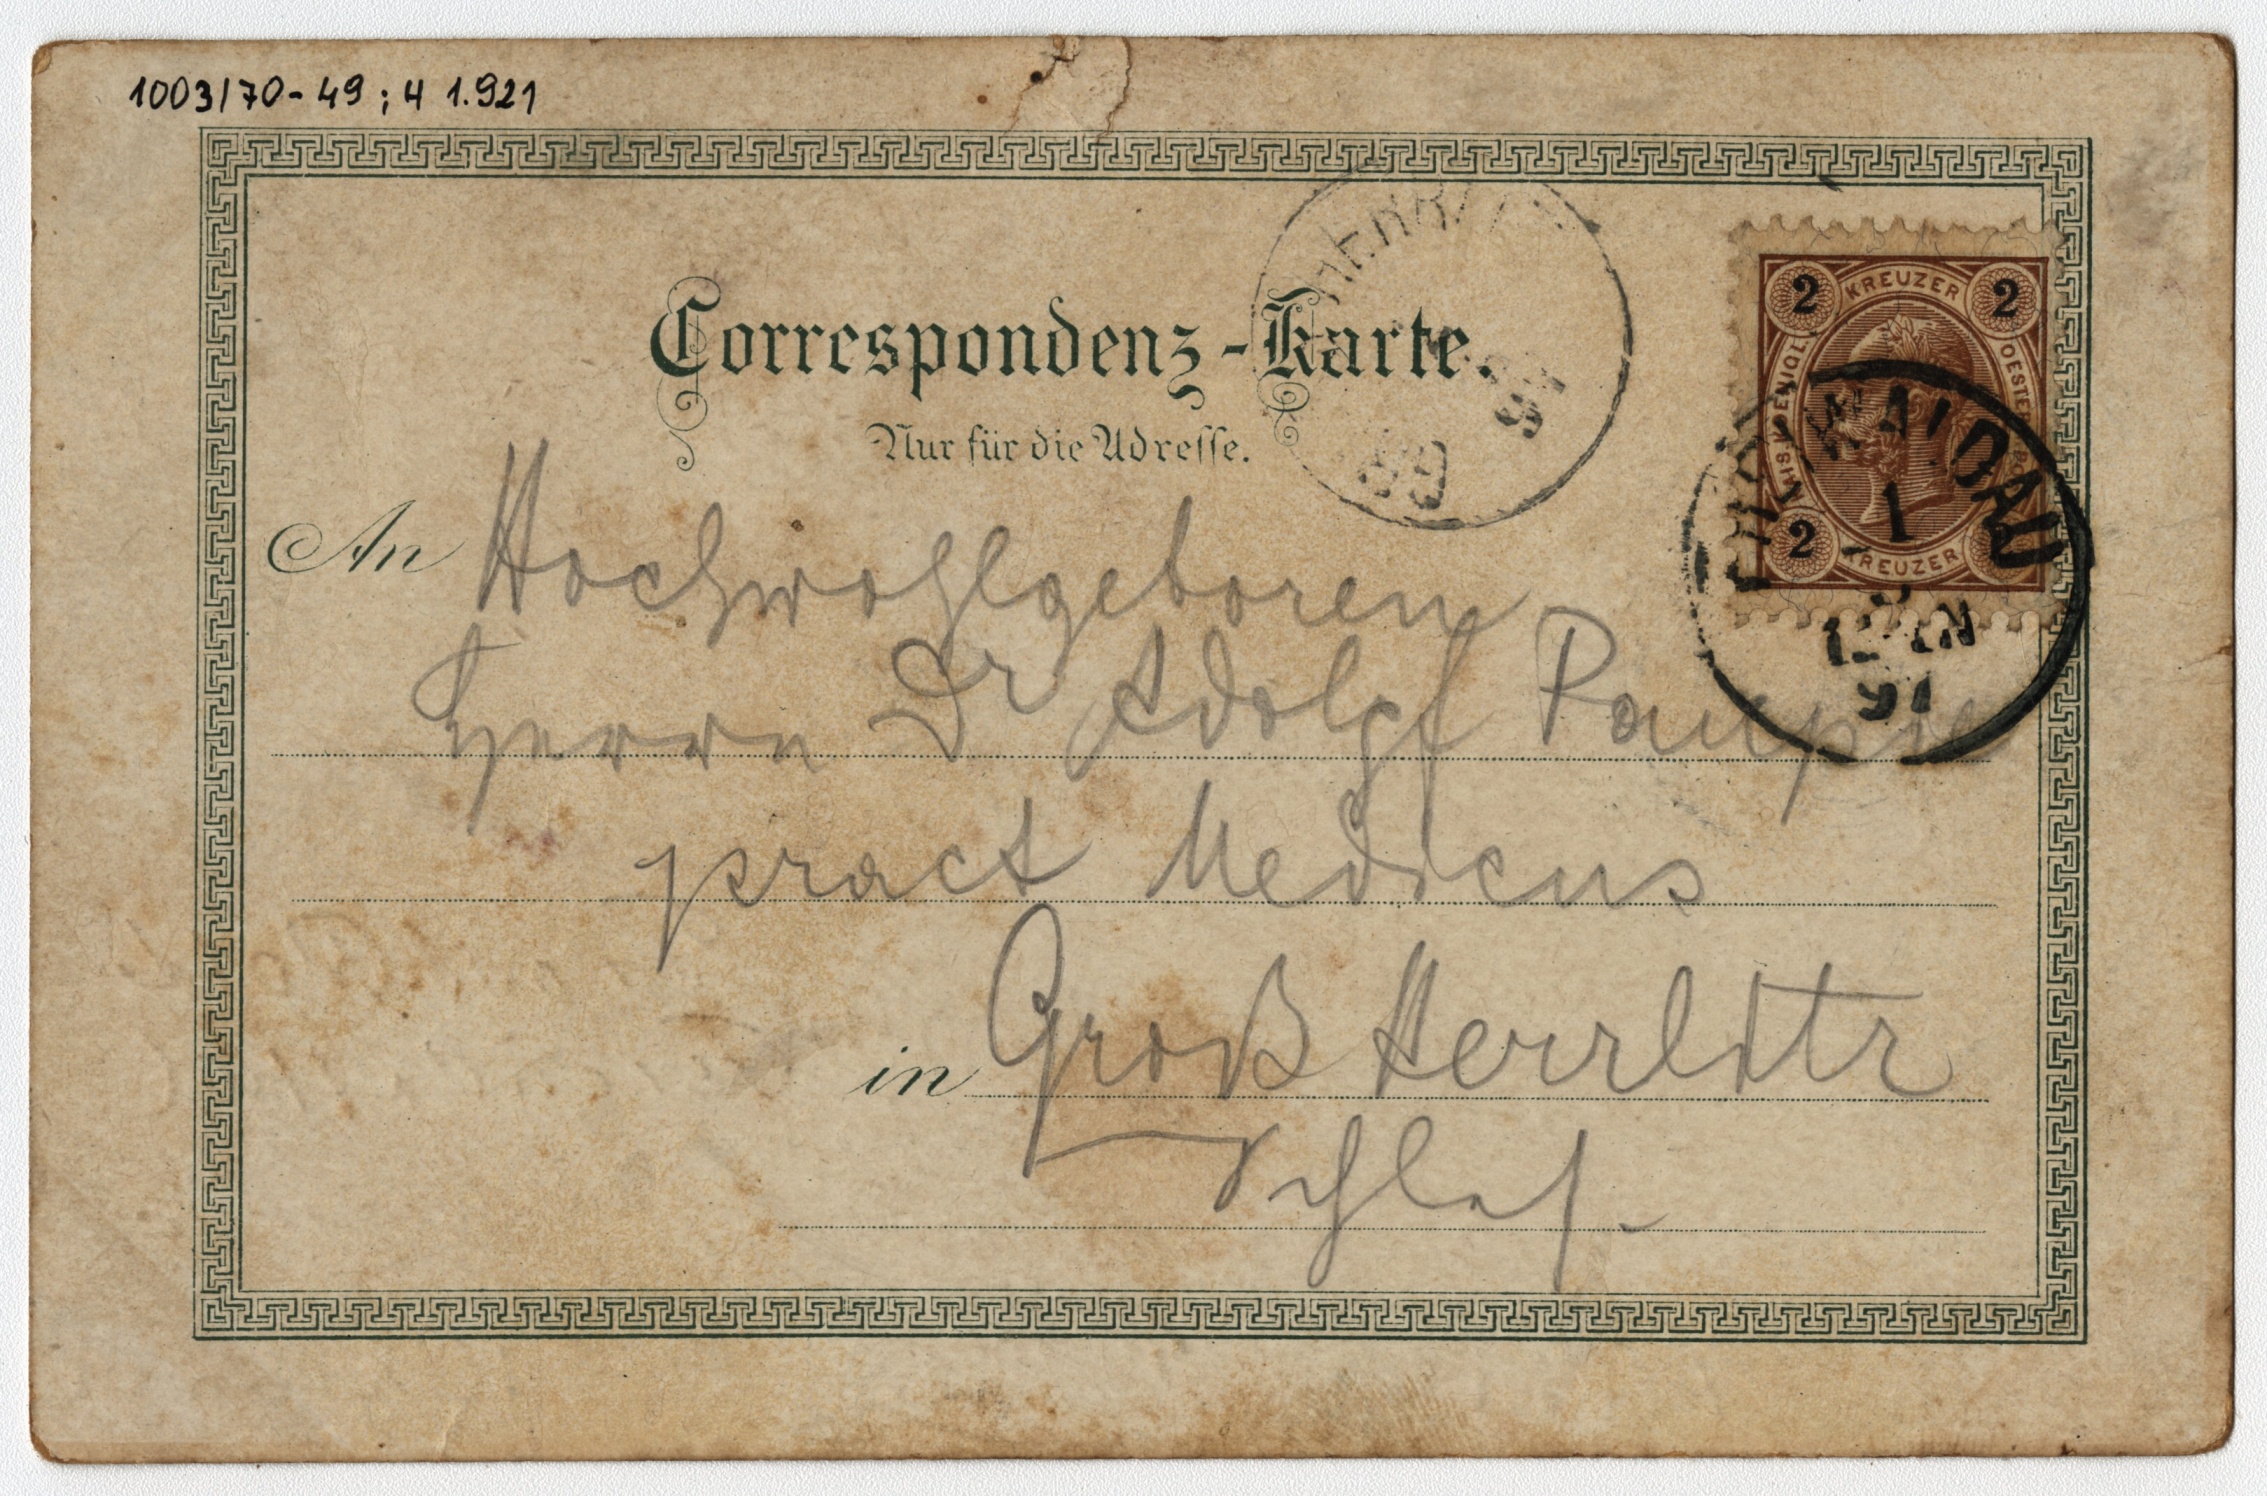 1003/70-49; H 1.921
Correspondenz-Karte.
Nur für die Adresse.
2 KREUZER 2
2 KREUZER
WALDAU
1
97
97
An Hochwohlgeboren
Herrn Dr Adolf
pract Medicus
in Groß Herrlitz
Schles.